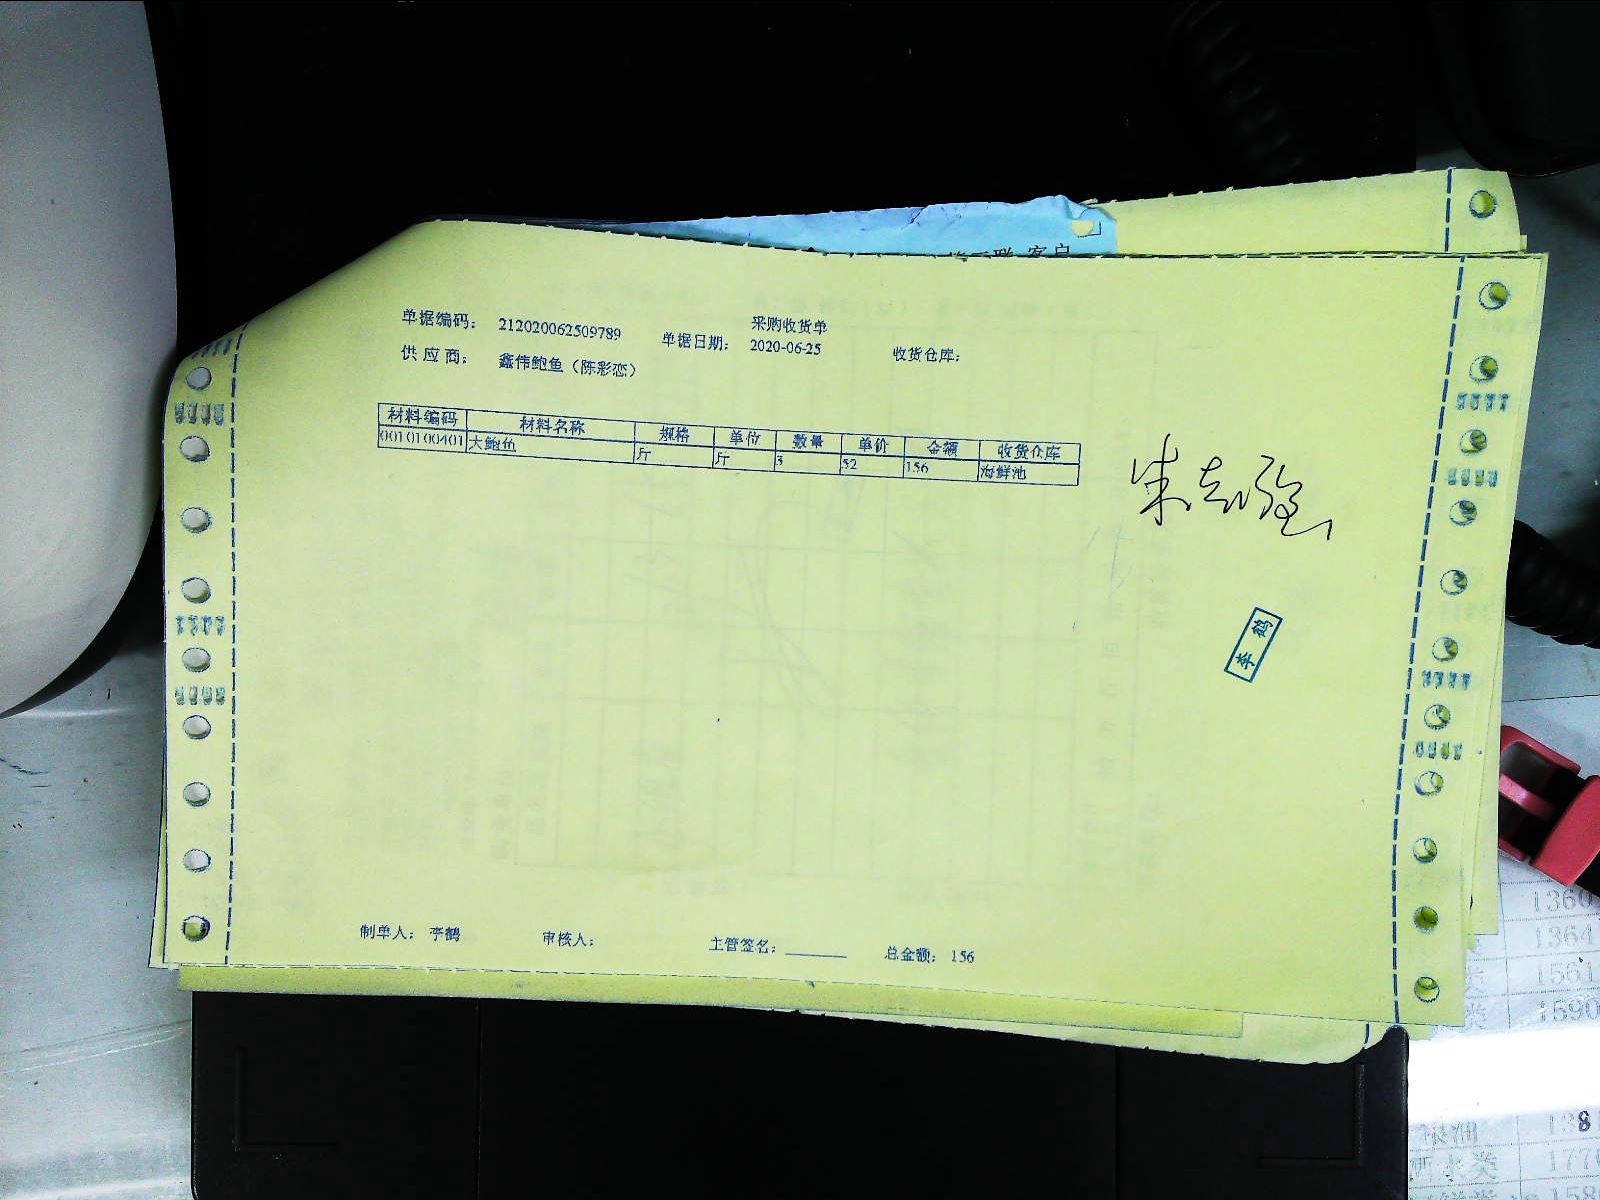 采购收货单
单据编码： 212020062509789 单据日期： 2020-06-25 收货仓库：
供应商： 鑫伟鲍鱼（陈彩恋）
材料编码 材料名称 规格 单位 数量 单价 金额 收货仓库
0010100401 大鲍鱼 斤 斤 3 52 156 海鲜池
李鹤
制单人： 李鹤 审核人： 主管签名： 总金额： 156
客户
1360
1364
类 1561
类 1590
酒水类 1770